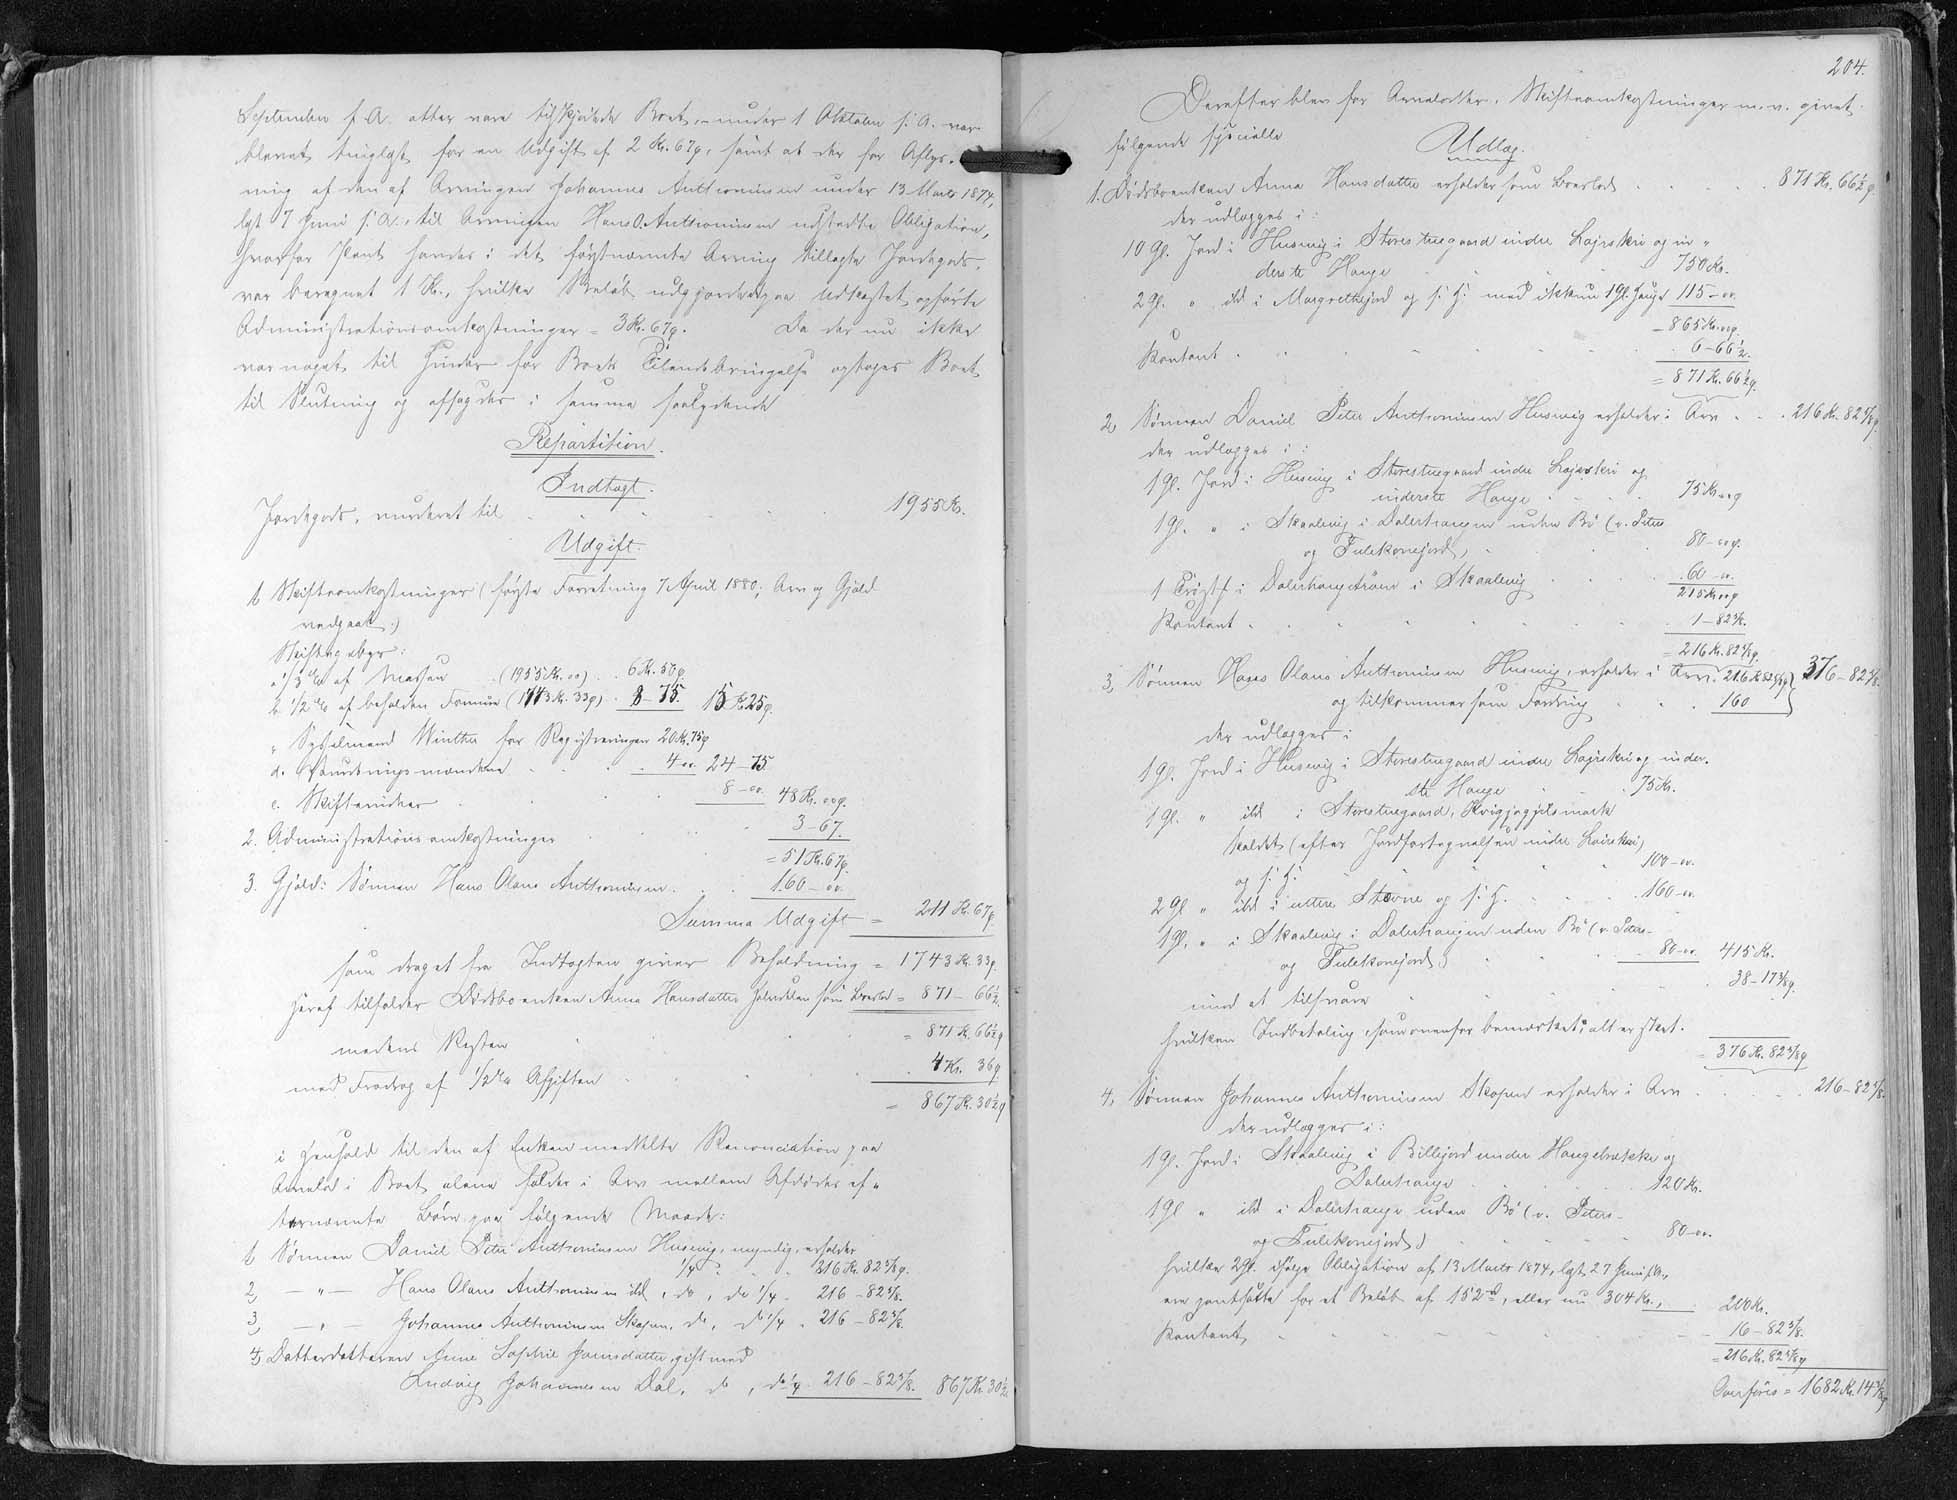 September f. A. atter vare tilskjødede Boet, under 1 Oktober s. A. var
blevet tinglyst for en Udgift af 2 Kr. 67ø, samt at der for Aflys-
ning af den af Arvingen Johannes Anthoniussen under 13 Marts 1874,
lyst 7 Juni s. A., til Arvingen Hans O. Anthoniussen udstedte Obligation,
hvorfor Pant havdes i det førstnævnte Arving tillagte Jordegods,
var beregnet 1 Kr., hvilke Beløb udgjorde paa Udkastet opførte
Administrationsomkostninger = 3 Kr. 67ø. Da der nu ikke
var noget til Hinder for Boets Tilendebringelse optoges Boet
til Slutning og afsagdes i samme saalydende
Repartition.
Indtægt.
Jordegods, vurderet til 1955 Kr.
Udgift.
1, Skifteomkostninger (første Forretning 7 April 1880; Arv og Gjæld
vedgaaet.)
Skiftegebyr:
a. 1/3 % af Massen (1955 Kr. 00) 6 Kr. 50ø
b. 1/2 % af beholden Formue (1743 Kr. 33ø) 8-75. 15 Kr. 25ø.
" Sysselmand Winther for Registreringen 20 Kr. 75ø
d. Vurderingsmændene 4-00 24-75
e. Skifteridser 8-00. 48 Kr. 00ø.
2. Administrationsomkostninger 3-67.
= 51 Kr. 67ø.
3. Gjæld: Sønnen Hans Olaus Anthoniussen 160-00.
Summa Udgift = 211 Kr. 67ø.
som draget fra Indtægten giver Beholdning = 1743 Kr. 33ø.
Heraf tilfalder Dødsboenken Anna Hansdatter Halvdelen som Boeslod = 871-66½.
medens Resten = 871 Kr. 66½ø
med Fradrag af 1/2 % Afgiften 4 Kr. 36ø
= 867 Kr. 30½ø
i Henhold til den af Enken meddelte Renonciation paa
Arvelod i Boet alene falder i Arv mellem Afdødes ef-
ternævnte Børn paa følgende Maade:
1, Sønnen Daniel Peter Anthoniussen Husevig, myndig, erholder
1/4 216 Kr. 82 5/8 ø.
2, — " — Hans Olaus Anthoniussen ibd, do, do 1/4 216-82 5/8.
3, — " — Johannes Anthoniussen Skopen, do, do 1/4 216-82 5/8.
4, Datterdatteren Anne Sophie Joensdatter, gift med
Ludvig Johannesen Dal, do, do 1/4 216-82 5/8. 867 Kr. 30½
204.
Derefter blev for Arvelodder, Skifteomkostninger m. v. givet
følgende specielle
Udlæg.
1. Dødsboenken Anna Hansdatter erholder som Boeslod 871 Kr. 66½ø
der udlægges i:
10 Gl. Jord i Husevig i Storestuegaard indre Lajrskri og in-
derste Hauge 750 Kr.
2 Gl. " ibd i Margrethejord og s. H. med ikkun 1 Gl. Hauge 115-00
= 865 Kr. 00ø.
Kontant 6-66½.
= 871 Kr. 66½ø.
2, Sønnen Daniel Peter Anthoniussen Husevig erholder i Arv 216 Kr. 82 5/8 ø.
der udlægges i:
1 Gl. Jord i Husevig i Storestuegaard indre Lajrskri og
inderste Hauge 75 Kr. 00ø
1 Gl. " i Skaalevig i Dalerhaugen uden Bø (v. Peters
og Fulekonejord) 80-00ø.
1 i Dalerhauge i Skaalevig 60-00.
215 Kr. 00ø
Kontant 1-82 5/8.
= 216 Kr. 82 5/8 ø.
3, Sønnen Hans Olaus Anthoniussen Husevig, erholder i Arv 216 Kr. 82 5/8 ø } 376-82 5/8.
og tilkommer som Fordring 160
der udlægges i
1 Gl. Jord i Husevig i Storestuegaard indre Lajrskri og inder-
ste Hauge 75 Kr.
1 Gl. " ibd i Storestuegaard,
kaldet (efter Jordfortegnelsen indre Lairskri)
og s. H. 100-00.
2 Gl. " ibd i uttere Stovne og s. H. 160-00.
1 Gl. " i Skaalevig i Dalerhaugen uden Bø (v. Peters-
og Fulekonejord) 80-00. 415 Kr.
imod at tilsvare 38-17 3/8 ø.
hvilken Indbetaling, som ovenfor bemærket, alt er sket.
= 376 Kr. 82 5/8 ø
4, Sønnen Johannes Anthoniussen Skopen erholder i Arv 216-82 5/8.
der udlægges i:
1 Gl. Jord i Skaalevig i Billejord under Haugebrekke og
Dalerhauge 120 Kr.
1 Gl. " ibd i Dalerhauge uden Bø (v. Peters-
og Fulekonejord) 80-00.
hvilke 2 Gl. ifølge Obligation af 13 Marts 1874, lyst 27 Juni s. A.,
ere pantsatte for et Beløb af 152 rd, eller nu 304 Kr., 200 Kr.
Kontant 16-82 5/8.
= 216 Kr. 82 5/8 ø
Overføres = 1682 Kr. 14 3/8 ø